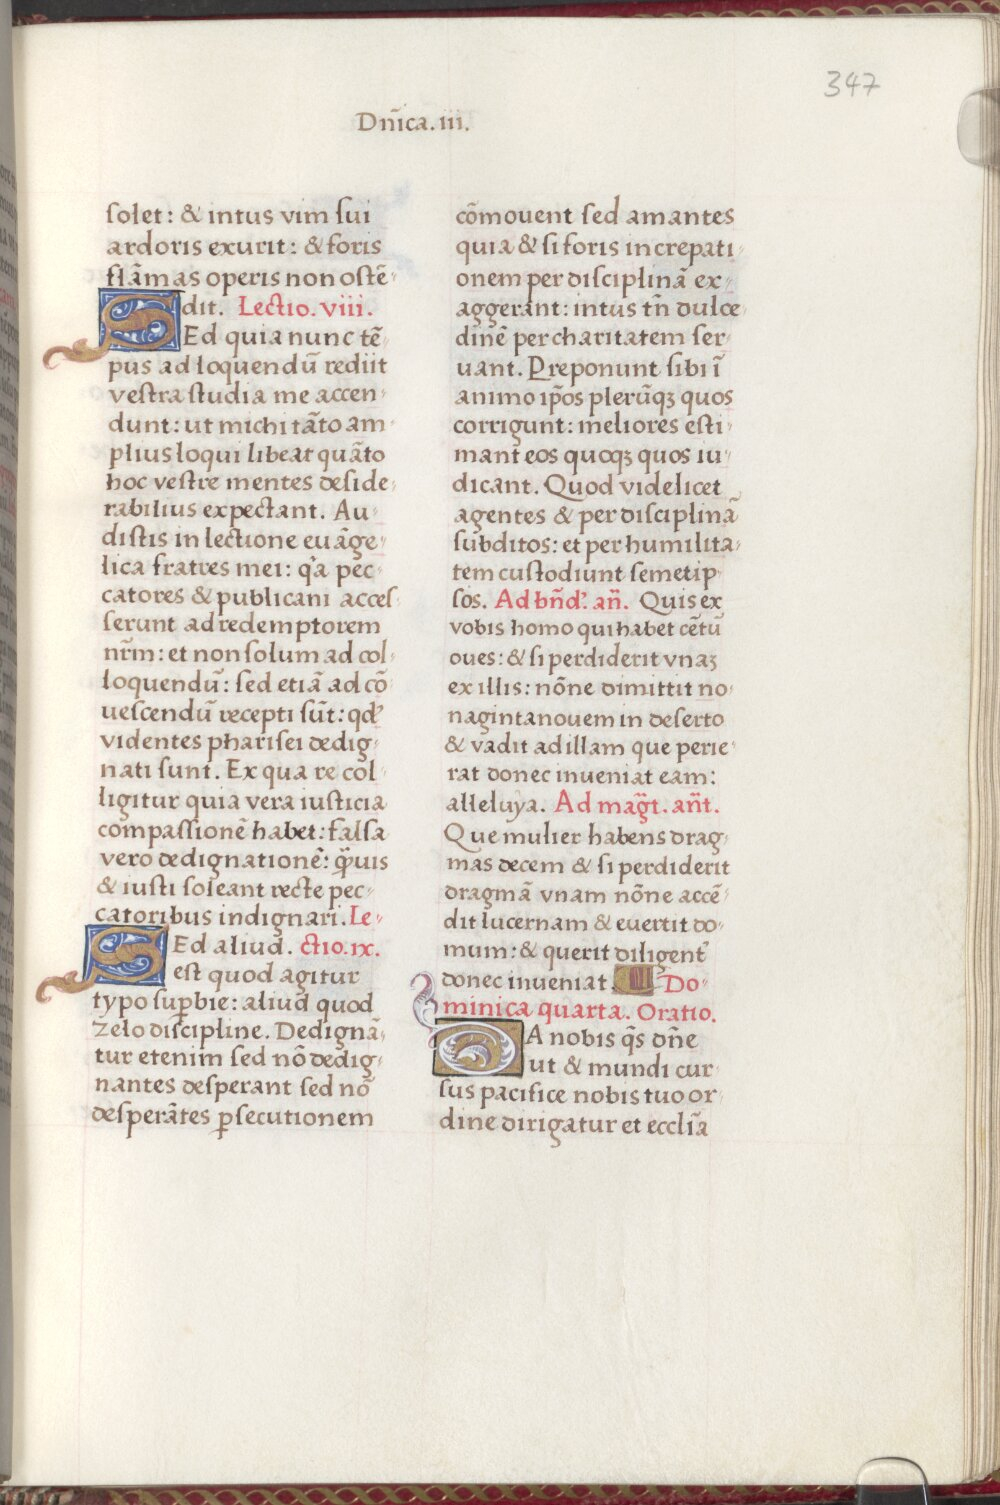 347
Dn̄ica.iii.
solet: & intus vim sui
ardoris exurit: & foris
flāmas operis non ostē-
dit. Lectio. viii.
SEd quia nunc tē-
pus ad loquendū rediit
vestra studia me accen-
dunt: ut michi tāto am-
plius loqui libeat quāto
hoc vestre mentes deside-
rabilius expectant. Au-
distis in lectione euāge-
lica fratres mei: qa pec-
catores & publicani acces-
serunt ad redemptorem
nr̄m: et non solum ad col-
loquendū: sed etiā ad cō-
uescendū recepti sūt: qd'
videntes pharisei dedig-
nati sunt. Ex qua re col-
ligitur quia vera iusticia
compassionē habet: falsa
vero dedignationē: q̄uis
& iusti soleant recte pec-
catoribus indignari. Le-
SEd aliud. ctio. ix.
est quod agitur
typo suꝑbie: aliud quod
zelo discipline. Dedignā-
tur etenim sed nō dedig-
nantes desperant sed nō
desperātes ꝑsecutionem
cōmouent sed amantes
quia & si foris increpati-
onem per disciplinā ex-
aggerant: intus tn̄ dulce-
dinē per charitatem ser-
uant. Preponunt sibi ī
animo ip̄os plerūqꝫ quos
corrigunt: meliores esti-
mant eos quoqꝫ quos iu-
dicant. Quod videlicet
agentes & per disciplinā
subditos: et per humilita-
tem custodiunt semetip-
sos. Ad bn̄d'. an̄. Quis ex
vobis homo qui habet cētū
oues: & si perdiderit vnaꝫ
ex illis: nōne dimittit no-
nagintanouem in deserto
& vadit ad illam que perie-
rat donec inueniat eam:
alleluya. Ad mag̃t. an̄t.
Que mulier habens drag-
mas decem & si perdiderit
dragmā vnam nōne accē-
dit lucernam & euertit do-
mum: & querit diligent'
donec inueniat. Do-
minica quarta. Oratio.
DA nobis q̄s dn̄e
ut & mundi cur-
sus pacifice nobis tuo or-
dine dirigatur et eccl̄ia